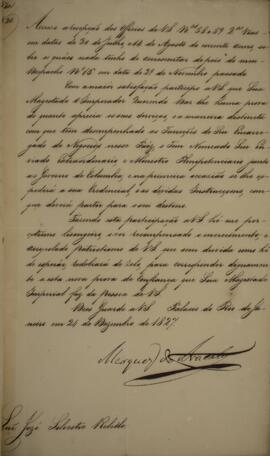 Accuso a recepção dos Officios de V.S. Nos 58 e 59 2as Vias
em datas de 30 de Julho, e 16 de Agosto do corrente anno, so-
bre os quaes nada tenho de accrescentar depois do meu
Despacho No 15 em data de 21 de Novembro passado.
Com a maior satisfação participo a V.S. que Sua
Magestade o Imperador Querendo dar lhe huma prova
de quanto aprecia os seus serviços, e a maneira distincta
com que tem desempenhado as Funcções de Seu Encar-
regado de Negocios nesse Paiz, O Tem Nomeado Seu En-
viado Extraordinario e Ministro Plenipotenciario junto
ao Governo de Columbia, e na primeira occasião se lhe ex-
pedirá a sua Credencial e as devidas Instrucções, com
que deverá partir para o seu destino.
Fazendo esta participação a V.S. foi me por
extremo lisongeiro ver recompensado o merecimento, e
patriotismo de V.S. que sem duvida como he
de esperar, redobrará de zelo, para corresponder dignamen-
te a esta nova prova de Confiança que Sua Magestade
Imperial faz da Pessoa de V.S.
Deos Guarde a V.S. Palacio do Rio de Ja-
neiro em 24 de Dezembro de 1827.
Marquez de Aracaty
Snr José Silvestre Rebello